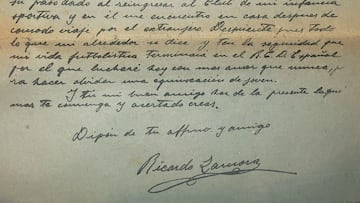 su pasado al reingresar al Club de mi infancia
sportiva y en él me encuentro en casa despues de
comodo viaje por el extranjero. Despues pues todo
lo que mi alrededor se dice y ten la seguridad que
mi vida futbolistica terminara en el R.C.D. Español
por el que lucharé hoy con mas amor que nunca, pa
ra hacer olvidar una equivocacion de joven.
Y tu mi buen amigo haz de la presente lo que
mas te convenga y acertado creas.
Dispon de tu affmo. y amigo
Ricardo Zamora